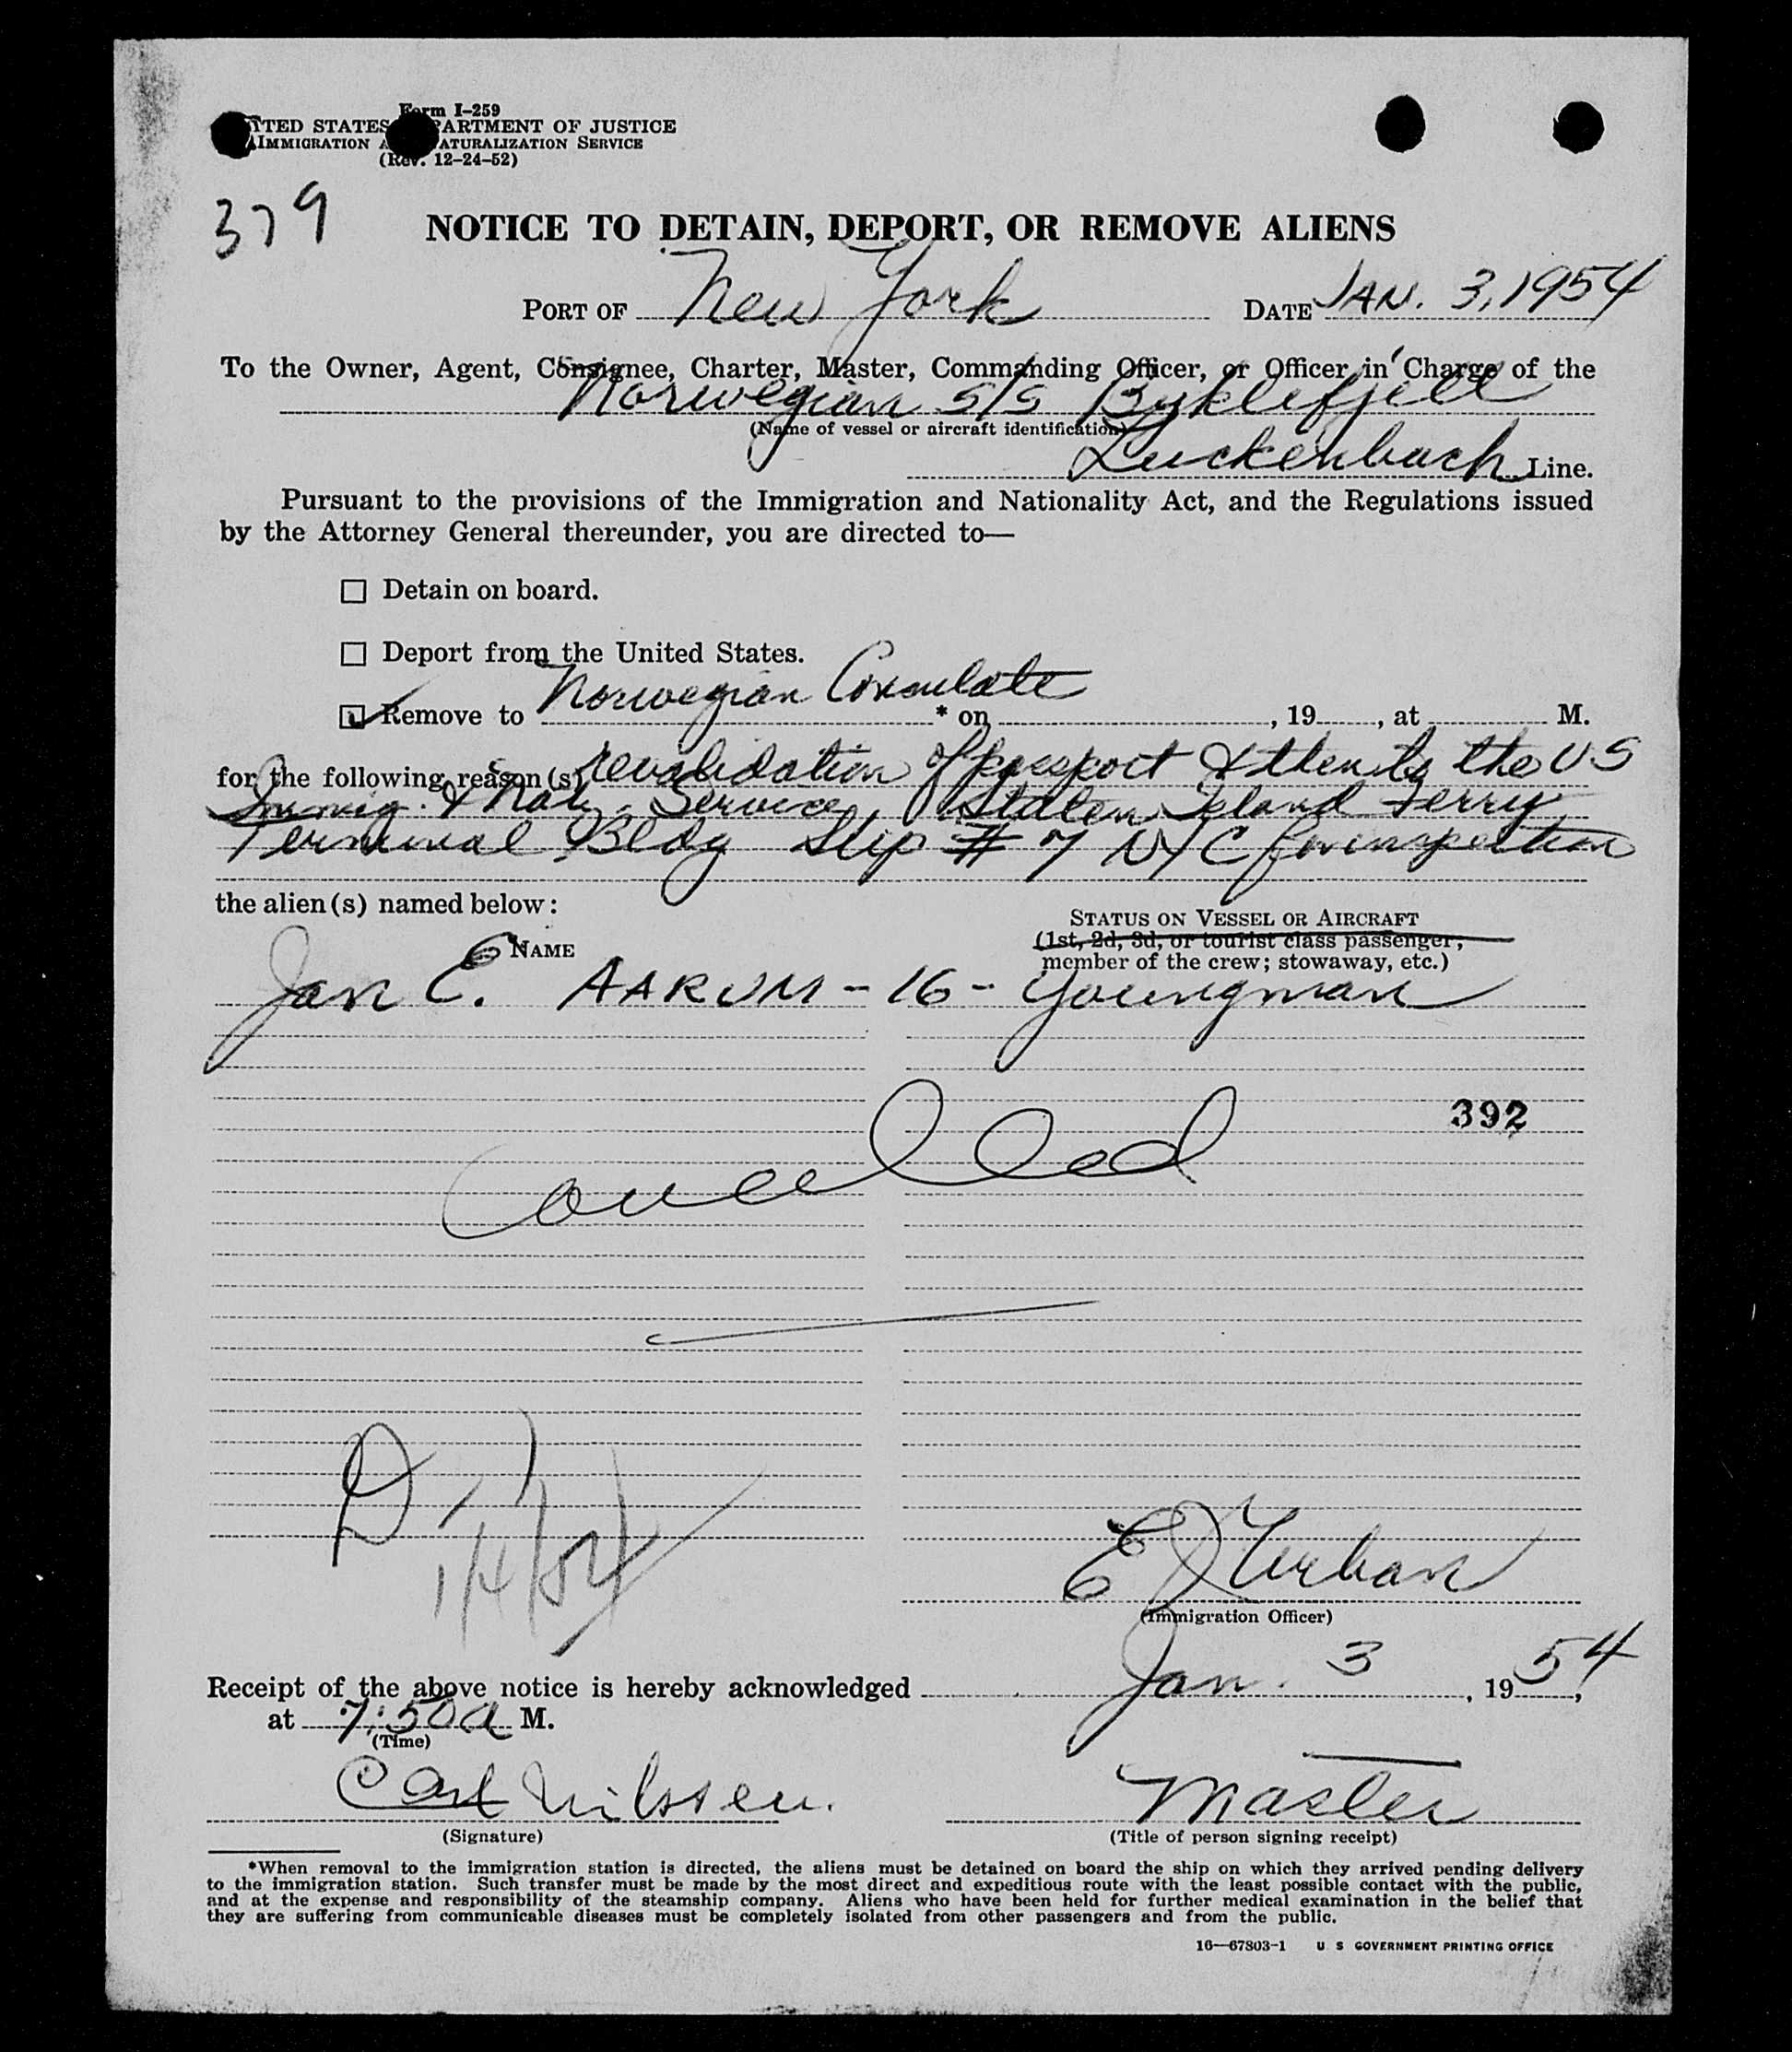 Form I-259
ITED STATES PARTMENT OF JUSTICE
IMMIGRATION A ATURALIZATION SERVICE
(Rev. 12-24-52)
379
NOTICE TO DETAIN, DEPORT, OR REMOVE ALIENS
PORT OF New York DATE JAN. 3, 1954
To the Owner, Agent, Consignee, Charter, Master, Commanding Officer, or Officer in Charge of the
Norwegian S/S Byklefjell
(Name of vessel or aircraft identification)
Luckenbach Line.
Pursuant to the provisions of the Immigration and Nationality Act, and the Regulations issued
by the Attorney General thereunder, you are directed to—
☐ Detain on board.
☐ Deport from the United States.
☑ Remove to Norwegian Consulate * on , 19 , at M.
for the following reason(s) revalidation of passport & then to the US
Immig. & Nat. Service, Staten Island Ferry
Terminal Bldg Slip # 7 NYC for inspection
the alien(s) named below:
NAME
STATUS ON VESSEL OR AIRCRAFT
(1st, 2d, 3d, or tourist class passenger,
member of the crew; stowaway, etc.)
Jan E. AARUM - 16 - Youngman
392
Cancelled
D
1/4/54
E J Urban
(Immigration Officer)
Receipt of the above notice is hereby acknowledged Jan. 3, 1954,
at 7:50 a M.
(Time)
Carl Nilssen. Master
(Signature) (Title of person signing receipt)
*When removal to the immigration station is directed, the aliens must be detained on board the ship on which they arrived pending delivery
to the immigration station. Such transfer must be made by the most direct and expeditious route with the least possible contact with the public,
and at the expense and responsibility of the steamship company. Aliens who have been held for further medical examination in the belief that
they are suffering from communicable diseases must be completely isolated from other passengers and from the public.
16—67803-1 U S GOVERNMENT PRINTING OFFICE